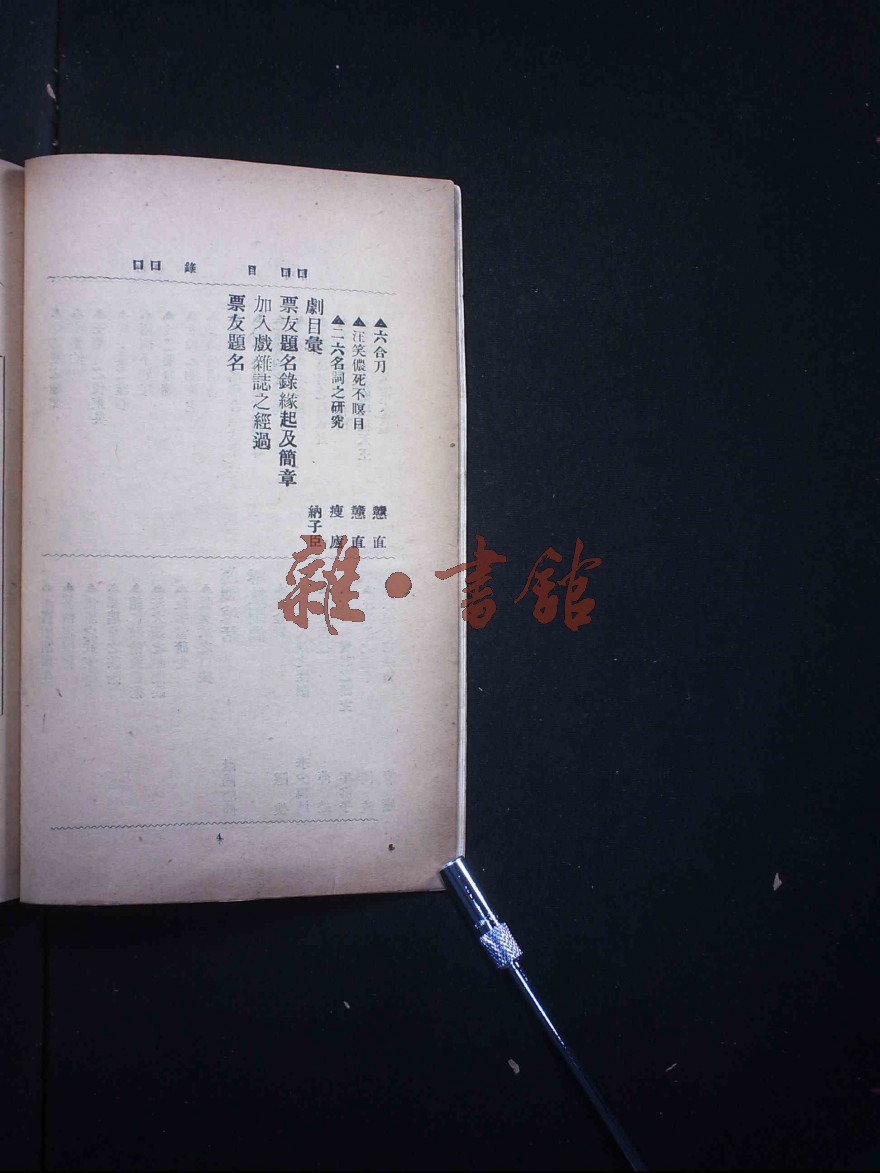 目錄
▲六合刀 戇直
▲汪笑儂死不瞑目 戇直
▲二六名詞之研究 瘦
劇目彙 納子臣
票友題名錄緣起及簡章
加入戲雜誌之經過
票友題名
4
雜·書館